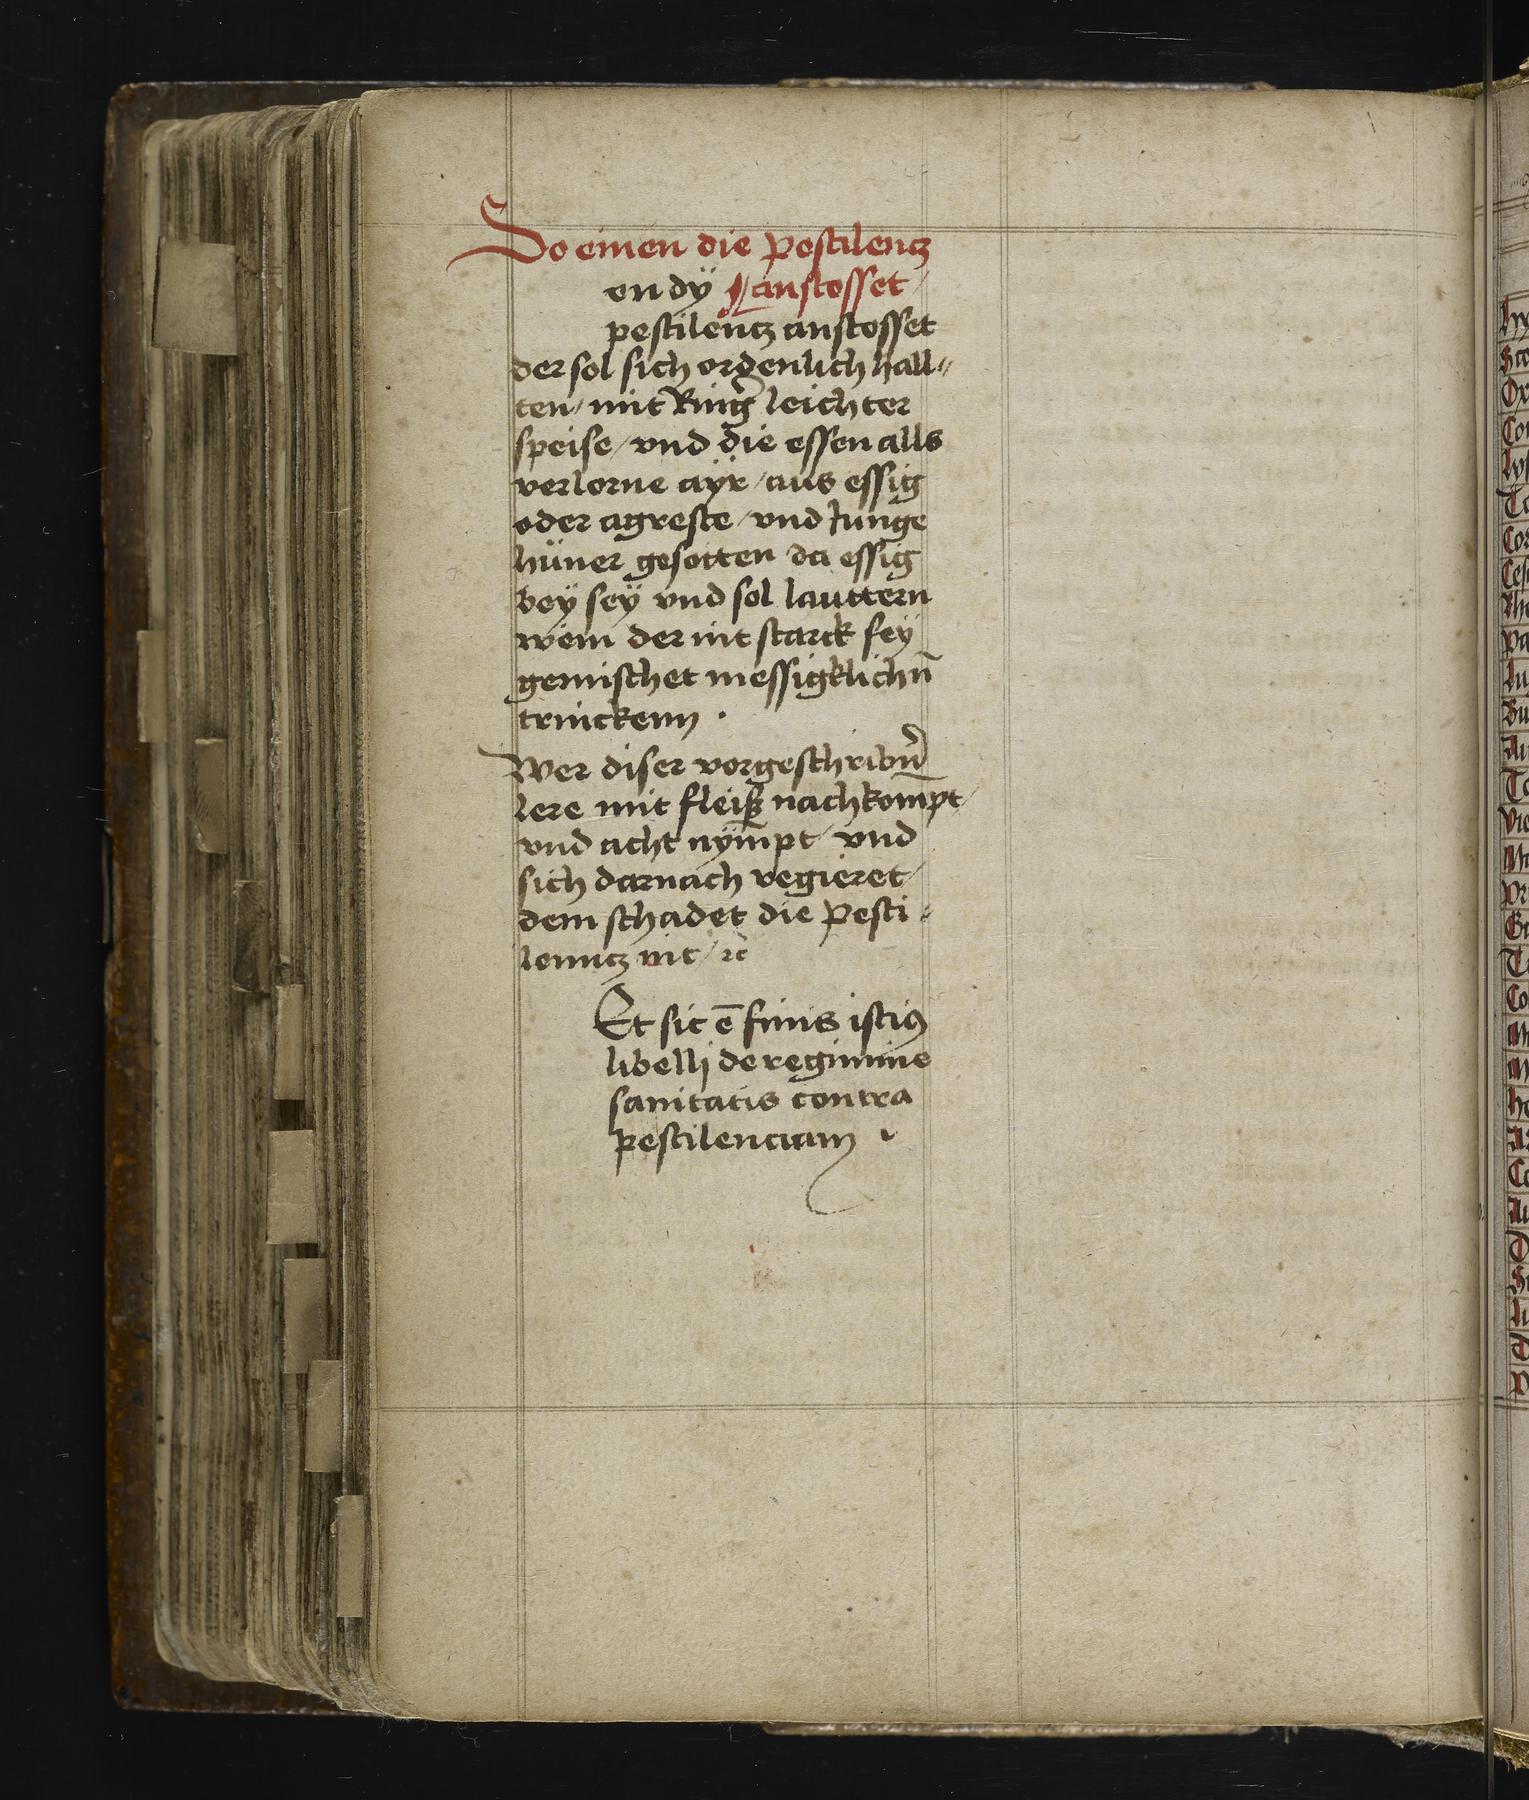 So einen die pestilentz
en dÿ anstosset
pestilentz anstosset
der sol sich ordenlich hall⸗
ten / mit Ring leichter
speise / vnd die essen alls
verlorne aÿr / aus essig
oder agreste / vnd Junge
hüner gesotten da essig
beÿ seÿ vnd sol lauttern
wein der nit starck seÿ
gemischet messigklichn̄
trinckenn .
Wer diser vorgeschribn̄
lere mit fleiß nachkom̄pt /
vnd acht nÿm̄pt / vnd
sich darnach regieret /
dem schadet die pesti⸗
lenntz nit / ꝛc
Et sic ē finis istiꝯ
libellj de regimine
sanitatis contra
pestilenciam